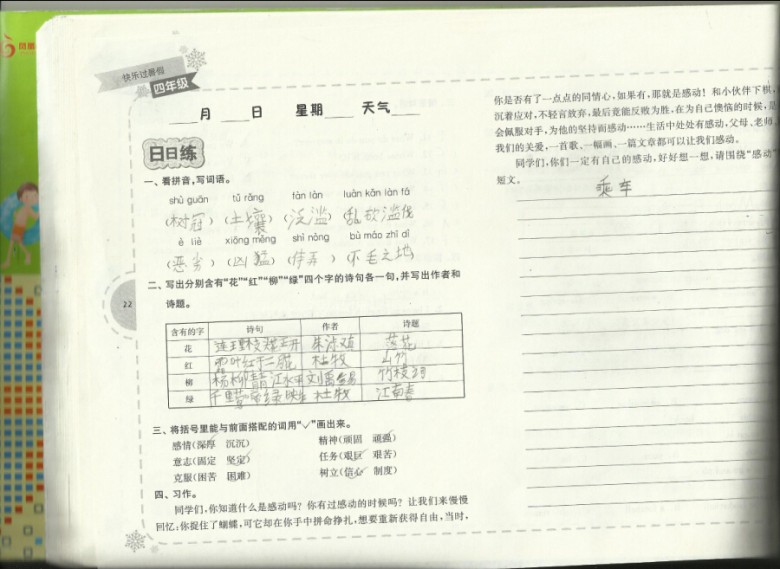 快乐过暑假
四年级
月 日 星期 天气
日日练
一、看拼音,写词语。
shù guān tǔ rǎng fàn làn luàn kǎn làn fá
(树冠) (土壤) (泛滥) (乱砍滥伐)
è liè xiōng měng shì nòng bù máo zhī dì
(恶劣) (凶猛) (侍弄) (不毛之地)
二、写出分别含有“花”“红”“柳”“绿”四个字的诗句各一句,并写出作者和
诗题。
含有的字 诗句 作者 诗题
花
红 杜牧 山竹
柳 杨柳青青江水平 刘禹易 竹枝词
绿 千里莺啼绿映红 杜牧 江南春
三、将括号里能与前面搭配的词用“✓”画出来。
感情(深厚 沉沉) 精神(顽固 顽强)
意志(固定 坚定) 任务(艰巨 艰苦)
克服(困苦 困难) 树立(信心 制度)
四、习作。
同学们,你知道什么是感动吗?你有过感动的时候吗?让我们来慢慢
回忆:你捉住了蝴蝶,可它却在你手中拼命挣扎,想要重新获得自由,当时,
22
你是否有了一点点的同情心,如果有,那就是感动!和小伙伴下棋,
沉着应对,不轻言放弃,最后竟能反败为胜,在为自己懊恼的时候,是
会佩服对手,为他的坚持而感动……生活中处处有感动,父母、老师、
我们的关爱,一首歌、一幅画、一篇文章都可以让我们感动。
同学们,你们一定有自己的感动,好好想一想,请围绕“感动”
短文。
乘车